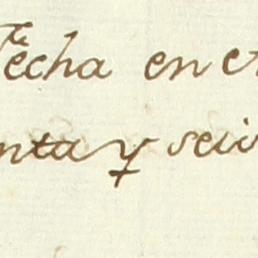 Fecha en e
nta y seis